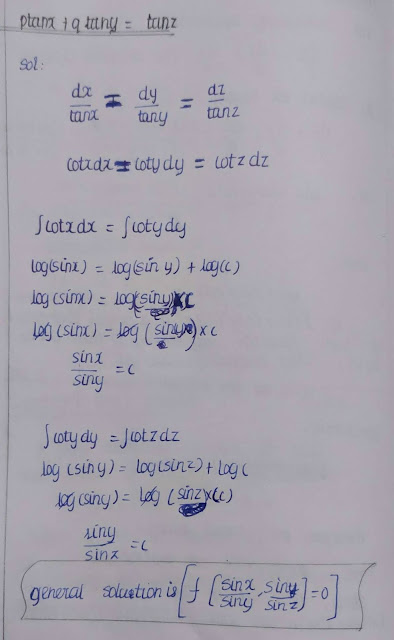 ptanx + q tany = tanz
Sol:
dx/tanx = dy/tany = dz/tanz
cotxdx = cotydy = cotzdz
∫cotxdx = ∫cotydy
log(sinx) = log(siny) + log(c)
log(sinx) = log(siny)×c
log(sinx) = log(siny)×c
sinx/siny = c
∫cotydy = ∫cotzdz
log(siny) = log(sinz) + log c
log(siny) = log(sinz)×(c)
siny/sinx = c
general soluction is [f [sinx/siny, siny/sinz] = 0]